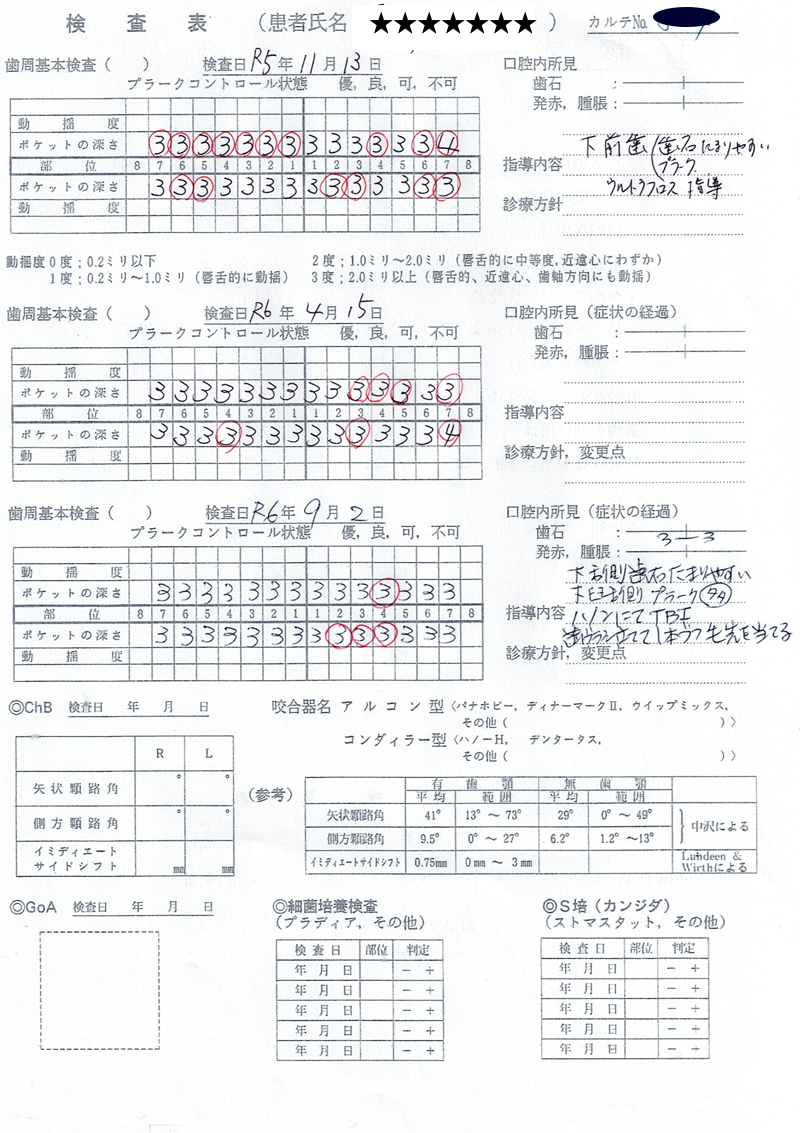 検査表 (患者氏名 ★★★★★★★ ) カルテNo.
歯周基本検査( ) 検査日 R5年 11月 13日
プラークコントロール状態 優,良,可,不可
動揺度
ポケットの深さ 3 3 3 3 3 3 3 3 3 3 3 3 3 4
部位 8 7 6 5 4 3 2 1 1 2 3 4 5 6 7 8
ポケットの深さ 3 3 3 3 3 3 3 3 3 3 3 3 3 3
動揺度
口腔内所見
歯石 :
発赤,腫脹:
下前歯 歯石たまりやすい
プラーク
指導内容
ウルトラフロス 指導
診療方針
動揺度0度;0.2ミリ以下 2度;1.0ミリ〜2.0ミリ(唇舌的に中等度,近遠心にわずか)
1度;0.2ミリ〜1.0ミリ(唇舌的に動揺) 3度;2.0ミリ以上(唇舌的、近遠心、歯軸方向にも動揺)
歯周基本検査( ) 検査日 R6年 4月 15日
プラークコントロール状態 優,良,可,不可
動揺度
ポケットの深さ 3 3 3 3 3 3 3 3 3 3 3 3 3 3
部位 8 7 6 5 4 3 2 1 1 2 3 4 5 6 7 8
ポケットの深さ 3 3 3 3 3 3 3 3 3 3 3 3 3 4
動揺度
口腔内所見(症状の経過)
歯石 :
発赤,腫脹:
指導内容
診療方針,変更点
歯周基本検査( ) 検査日 R6年 9月 2日
プラークコントロール状態 優,良,可,不可
動揺度
ポケットの深さ 3 3 3 3 3 3 3 3 3 3 3 3 3 3
部位 8 7 6 5 4 3 2 1 1 2 3 4 5 6 7 8
ポケットの深さ 3 3 3 3 3 3 3 3 3 3 3 3 3 3
動揺度
口腔内所見(症状の経過)
歯石 :
3 3
発赤,腫脹:
下舌側歯石たまりやすい
舌側 プラーク
指導内容 にて TBI
立てて1本づつ毛先を当てる
診療方針,変更点
◎ChB 検査日 年 月 日
R L
矢状顆路角 ° °
側方顆路角 ° °
イミディエート
サイドシフト mm mm
咬合器名 アルコン型〈パナホビー,ディナーマークⅡ,ウイップミックス,
その他( )〉
コンディラー型〈ハノーH, デンタータス,
その他( )〉
(参考)
有歯顎 無歯顎
平均 範囲 平均 範囲
矢状顆路角 41° 13°〜73° 29° 0°〜49°
側方顆路角 9.5° 0°〜27° 6.2° 1.2°〜13°
}中沢による
イミディエートサイドシフト 0.75mm 0mm〜3mm
Lundeen &
Wirthによる
◎GoA 検査日 年 月 日
◎細菌培養検査
(プラディア,その他)
検査日 部位 判定
年 月 日 − +
年 月 日 − +
年 月 日 − +
年 月 日 − +
年 月 日 − +
◎S培(カンジダ)
(ストマスタット,その他)
検査日 部位 判定
年 月 日 − +
年 月 日 − +
年 月 日 − +
年 月 日 − +
年 月 日 − +